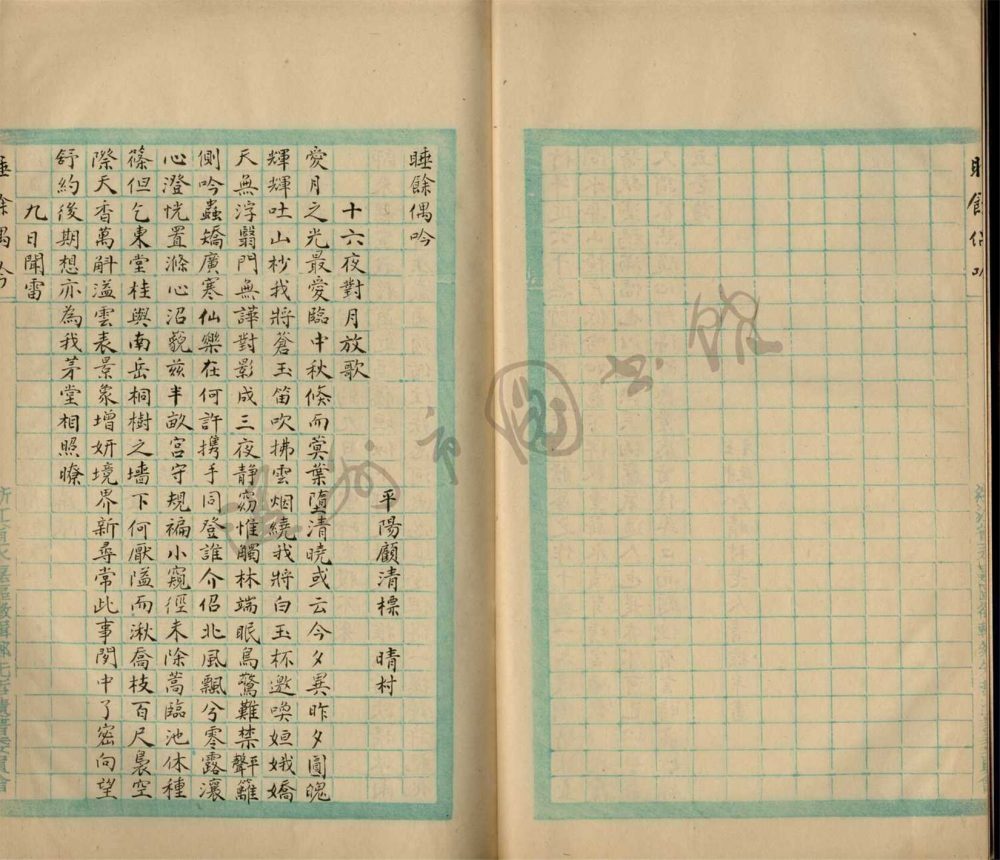 睡餘偶吟
平陽顧清標 晴村
十六夜對月放歌
愛月之光最愛臨中秋倏而蓂葉墮清曉或云今夕異昨夕圓魄
輝輝吐山杪我將蒼玉笛吹拂雲烟繞我將白玉杯邀喚姮娥嬌
天無浮翳門無譁對影成三夜靜窈惟觸林端眠鳥驚難禁聲籬
側吟蟲矯廣寒仙樂在何許携手同登誰介侶北風飄兮零露瀼
心澄恍置滌心沼貌茲半畝宮守規褊小窺徑未除蒿臨池休種
篠但乞東堂桂與南岳桐樹之墻下何厭隘而湫喬枝百尺裊空
際天香萬斛溢雲表景象增妍境界新尋常此事関中了窓向望
舒約後期想亦為我茅堂相照瞭
九日聞雷
睡餘偶吟